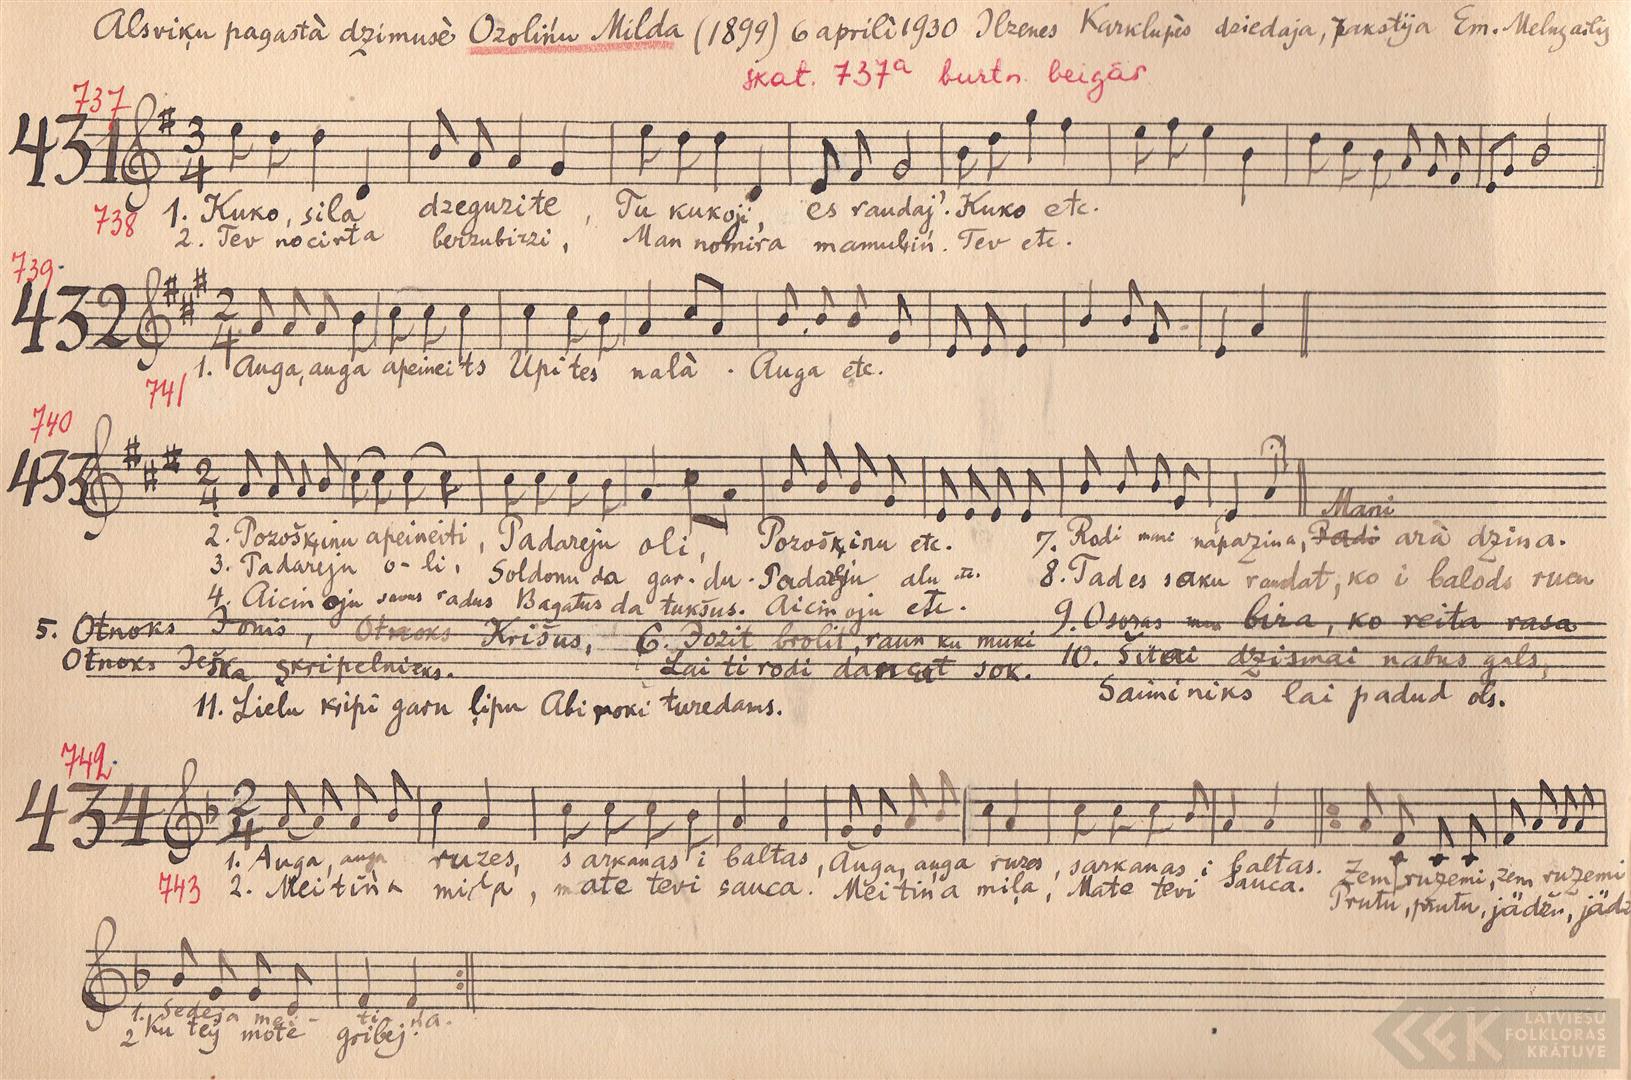 Alsviķu pagastà dzimusè Ozoliņu Milda (1899) 6 aprilì 1930 Ilzenes Karklupès dziedaja, rakstija Em. Melngailis
skat. 737a burtn. beigās
737
431
3
4
738
1. Kuko, sila dzeguzite, Tu kukoji, es raudaj'. Kuko etc.
2. Tev nocirta berzubirzi, Man nomira mamuliņ. Tev etc.
739.
432
2
4
741
1. Auga, auga apeineits Upites malà. Auga etc.
740
433
2
4
2. Pozošķinu apeineiti, Padareju oli, Pozošķinu etc.
3. Padareju o-li, Soldonu da gar-du. Padareju alu etc.
4. Aicinoju savus radus Bagatus da tukšus. Aicinoju etc.
5. Otnoks Jonis, Otnoks Krišus,
Otnoks Ješka skripelnieks.
6. Jozit brolit, raun ku muki
Lai ti rodi dancat sok.
Mani
7. Rodi mani napazina, Padi arà dzina.
8. Tad es saku raudat, ko i balods ruon
9. Osoras man bira, ko reita rasa
10. Šitai dzismai nabus gals,
Saiminiks lai padud ols.
11. Lielu kripi garu ļipu Abi noki turedams.
742.
434
2
4
1. Auga, auga ruzes, sarkanas i baltas, Auga, auga ruzes, sarkanas i baltas. Zem ruzemi, zem ruzemi
743
2. Meitiņa miļa, mate tevi sauca. Meitiņa miļa, Mate tevi sauca. Prutu, prutu, jädzu, jädz
1. Sedeja mei-tiņa.
2 Ku tej mote gribej.
LATVIEŠU
FOLKLORAS
KRĀTUVE